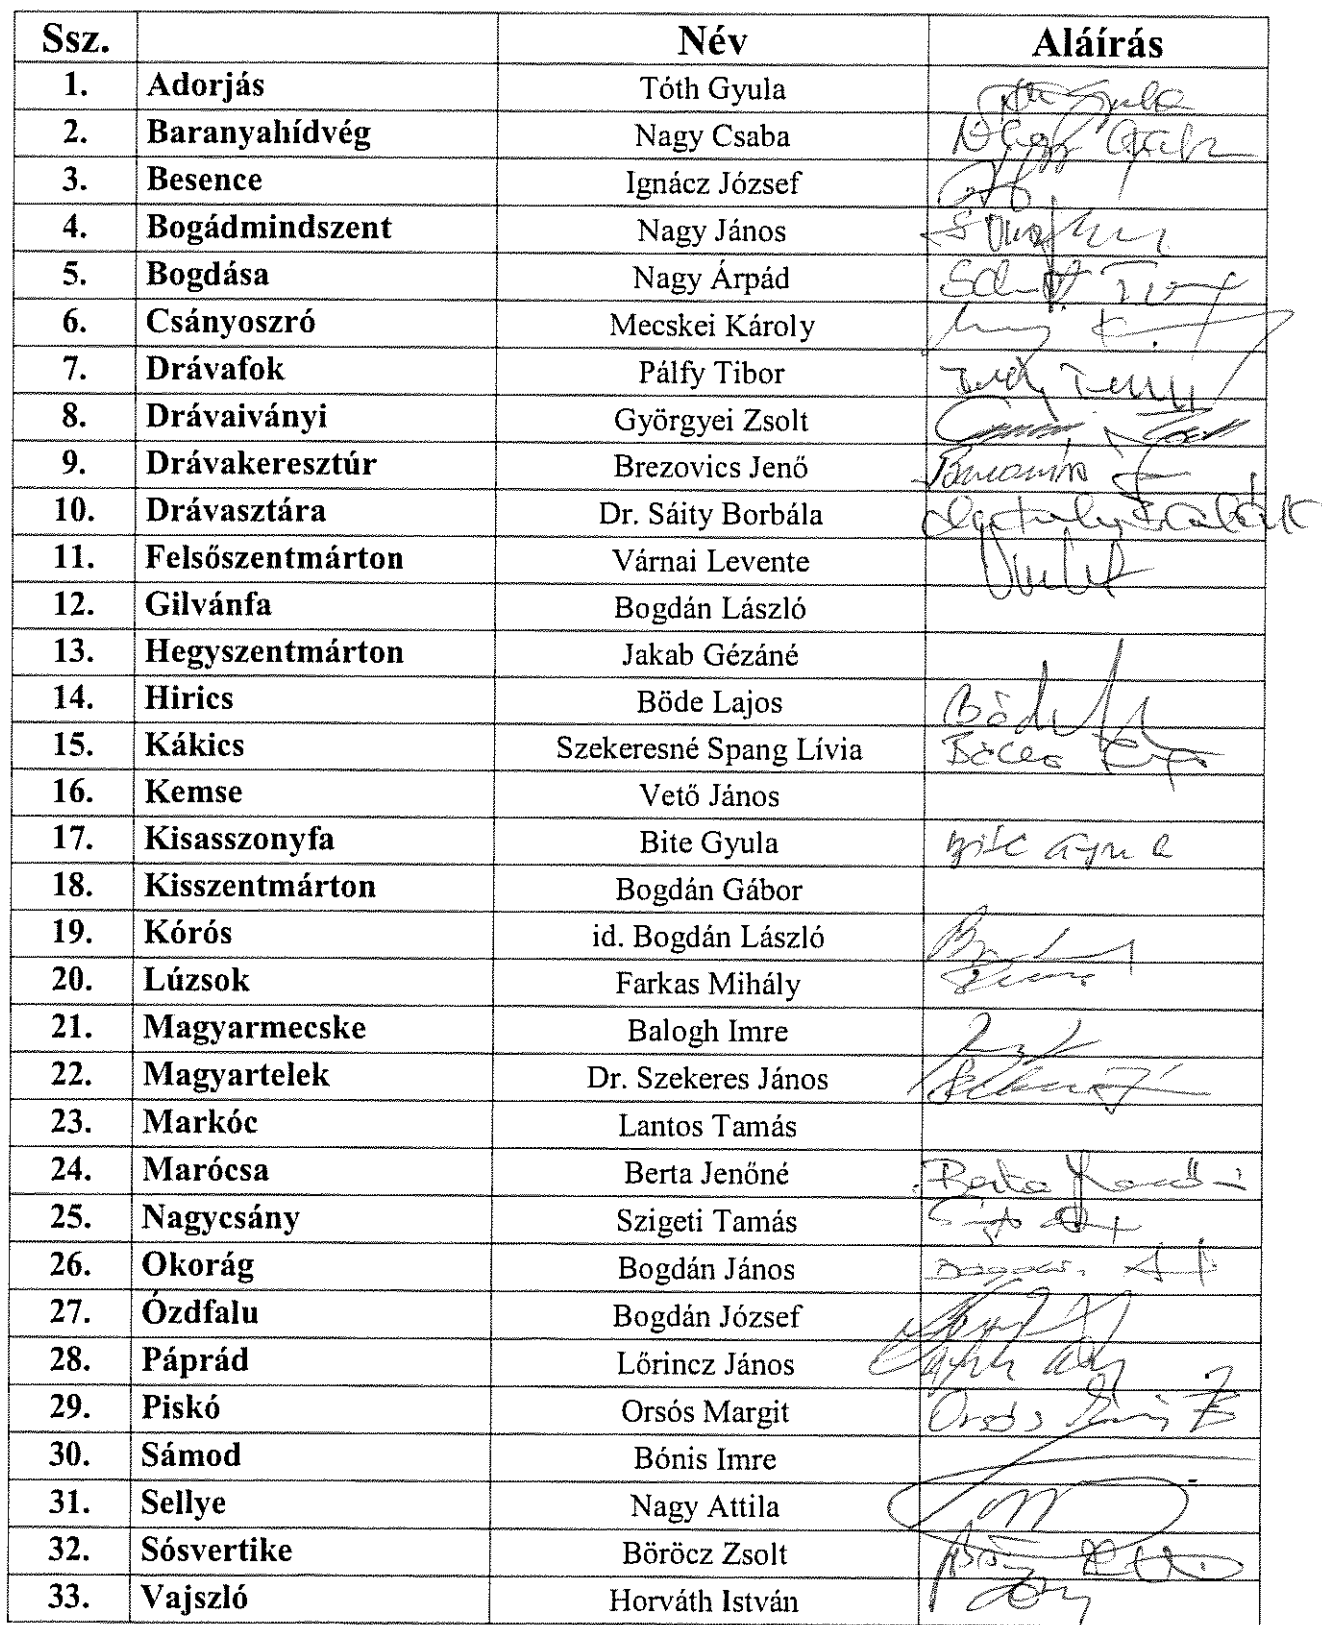 Ssz. Név Aláírás
1. Adorjás Tóth Gyula Tóth Gyula
2. Baranyahídvég Nagy Csaba Nagy Csaba
3. Besence Ignácz József
4. Bogádmindszent Nagy János
5. Bogdása Nagy Árpád
6. Csányoszró Mecskei Károly
7. Drávafok Pálfy Tibor
8. Drávaiványi Györgyei Zsolt
9. Drávakeresztúr Brezovics Jenő
10. Drávasztára Dr. Sáity Borbála
11. Felsőszentmárton Várnai Levente
12. Gilvánfa Bogdán László
13. Hegyszentmárton Jakab Gézáné
14. Hirics Böde Lajos
15. Kákics Szekeresné Spang Lívia
16. Kemse Vető János
17. Kisasszonyfa Bite Gyula Bite Gyula
18. Kisszentmárton Bogdán Gábor
19. Kórós id. Bogdán László
20. Lúzsok Farkas Mihály
21. Magyarmecske Balogh Imre
22. Magyartelek Dr. Szekeres János
23. Markóc Lantos Tamás
24. Marócsa Berta Jenőné Berta Jenőné
25. Nagycsány Szigeti Tamás
26. Okorág Bogdán János
27. Ózdfalu Bogdán József
28. Páprád Lőrincz János
29. Piskó Orsós Margit Orsós
30. Sámod Bónis Imre
31. Sellye Nagy Attila
32. Sósvertike Böröcz Zsolt
33. Vajszló Horváth István